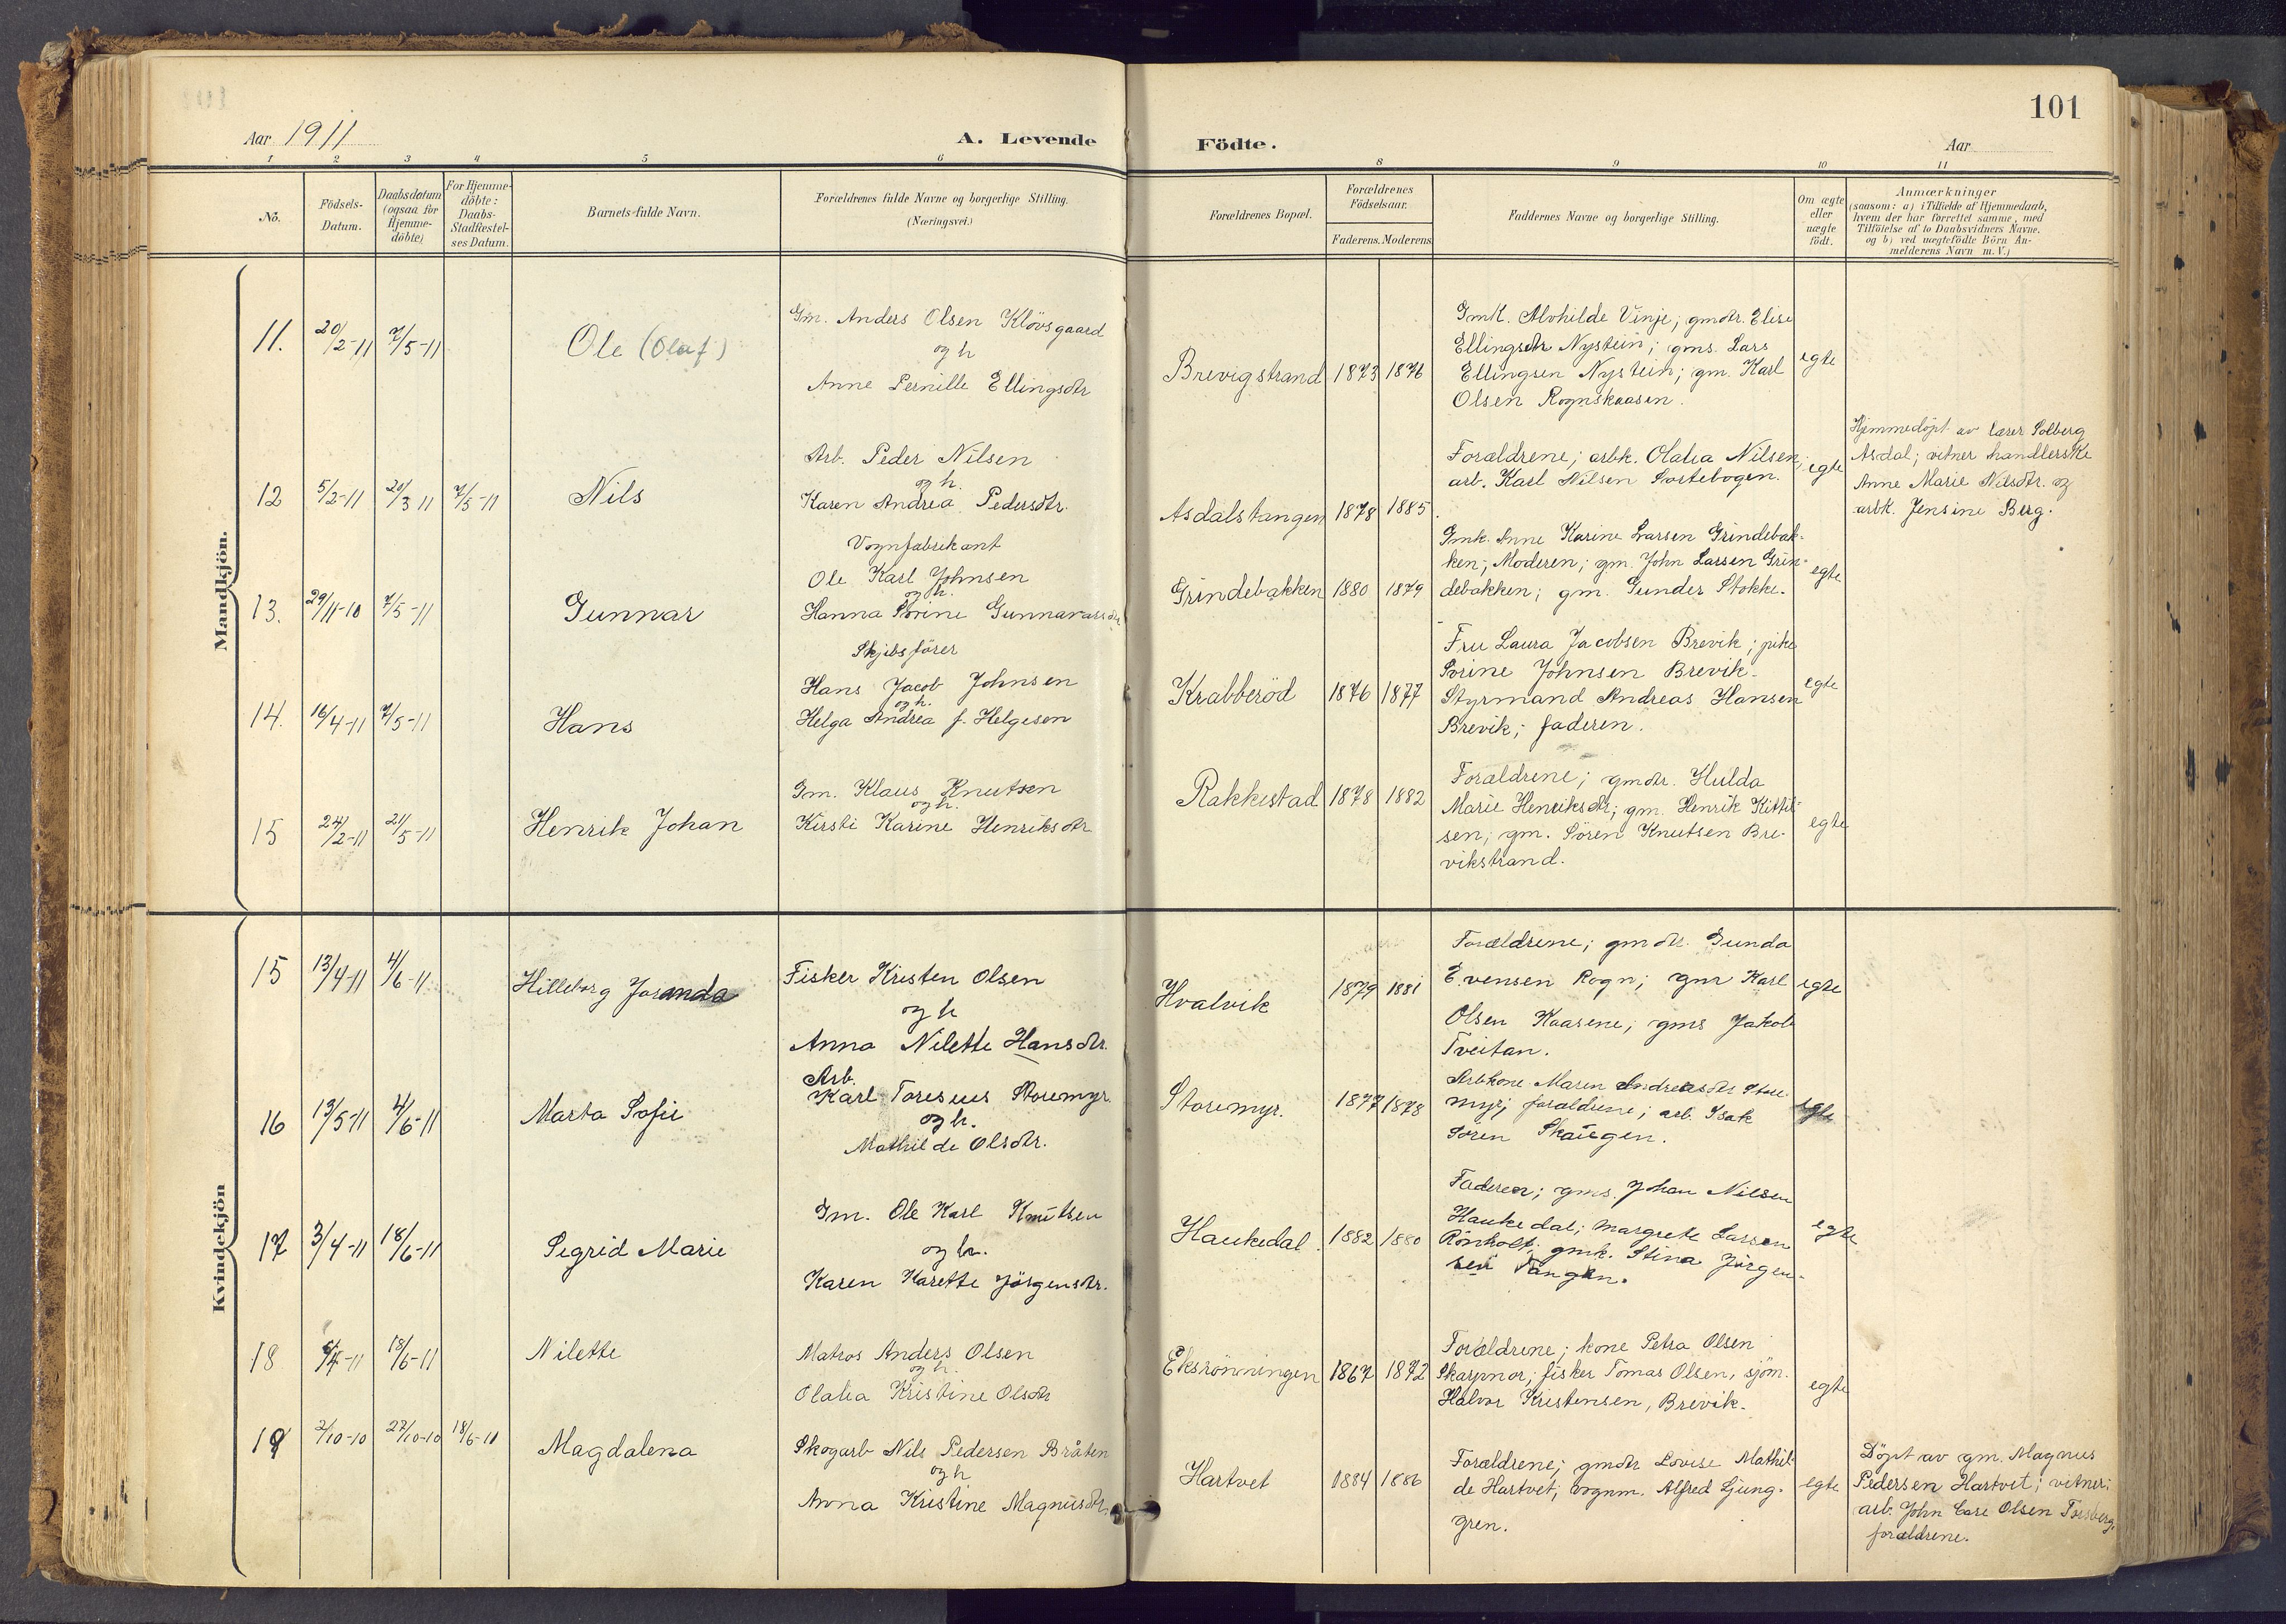 101
Aar 1911
A. Levende Födte.
Aar
1 2 3 4 5 6 8 9 10 11
No.
Födsels-
Datum.
Daabsdatum
(ogsaa for
Hjemme-
döbte)
For Hjemme-
döbte:
Daabs-
Stadfæstel-
ses Datum.
Barnets fulde Navn.
Forældrenes fulde Navne og borgerlige Stilling.
(Næringsvei.)
Forældrenes Bopæl.
Forældrenes
Födselsaar.
Faderens. Moderens
Faddernes Navne og borgerlige Stilling.
Om ægte
eller
uægte
födt.
Anmærkninger
(saasom: a) i Tilfælde af Hjemmedaab,
hvem der har forrettet samme, med
Tilföielse af to Daabsvidners Navne.
og b) ved uægtefödte Börn An-
melderens Navn m. V.)
Mandkjön.
11. 20/2-11 7/5-11
Ole (Olaf)
Gm. Anders Olsen Klövsgaard
og h
Anne Pernille Ellingsdtr
Brevigstrand 1873 1876
Gmk. Alvhilde Vinje; gmdtr. Elise
Ellingsdtr Nystein; gms. Lars
Ellingsen Nystein; gm. Karl
Olsen Rognskaasen.
egte
12 5/2-11 20/3 11 7/5-11
Nils
Arb. Peder Nilsen
og h.
Karen Andrea Pedersdtr.
Asdalstangen 1878 1885
Forældrene; arbk. Olalia Nilsen;
arb. Karl Nilsen Sortebogen.
egte
Hjemmedöpt av lærer Solberg
Asdal; vitner handlerske
Anne Marie Nilsdtr. og
arbk. Jensine Berg.
13. 29/11-10 7/5-11
Gunnar
Vognfabrikant
Ole Karl Johnsen
og h.
Hanna Sorine Gunnararsdtr
Grindebakken 1880 1879
Gmk. Anne Karine Larsen Grindebak-
ken; Moderen; gm. John Larsen Grin-
debakken; gm. Gunder Stokke.
egte
14. 16/4-11 7/5-11
Hans
Skjibsförer
Hans Jacob Johnsen
og h.
Helga Andrea f. Helgesen
Krabberöd 1876 1877
Fru Laura Jacobsen Brevik; pike
Sorine Johnsen Brevik.
Styrmand Andreas Hansen
Brevik; faderen.
egte
15 24/2-11 21/5-11
Henrik Johan
Gm. Klaus Knutsen
og h.
Kirsti Karine Henriksdtr
Rakkestad 1878 1882
Forældrene; gmdtr. Hulda
Marie Henriksdtr; gm. Henrik Kittil-
sen; gm. Sören Knutsen Bre-
vikstrand.
egte
Kvindekjön
15 13/4-11 4/6-11
Hilleborg Joranda
Fisker Kristen Olsen
og h
Anna Nilette Hansdtr.
Hvalvik 1879 1881
Forældrene; gmdtr. Gunda
Evensen Rogn; gm Karl
Olsen Kaasene; gms Jakob
Tveitan.
egte
16 13/5-11 4/6-11
Marta Sofie
Arb.
Karl Toresius Storemyr.
og h.
Mathilde Olsdtr.
Storemyr. 1877 1878
Arbkone Maren Andreasdtr Store-
myr; forældrene; arb. Isak
Sören Skaugen.
egte
17 3/4-11 18/6-11
Sigrid Marie
Gm. Ole Karl Knutsen
og h.
Karen Karette Jörgensdtr.
Haukedal. 1882 1880
Faderen; gms. Johan Nilsen
Haukedal; Margrete Larsen
Rönholt; gmk. Stina Jörgen-
sen Tangen.
egte
18 /4-11 18/6-11
Nilette
Matros Anders Olsen
og h.
Olalia Kristine Olsdtr
Eksrönningen 1867 1872
Forældrene; kone Petra Olsen
Skarpnor; fisker Tomas Olsen, sjöm.
Halvor Kristensen, Brevik.
egte
19 2/10-10 27/10-10 18/6-11
Magdalena
Skogarb Nils Pedersen Bråten
og h
Anna Kristine Magnusdtr.
Hartvet 1884 1886
Forældrene; gmdtr Lovise Mathil-
de Hartvet; vognm. Alfred Ljung-
gren.
egte
Döpt av gm. Magnus
Pedersen Hartvet; vitner:
arb. John Carl Olsen Torsberg,
forældrene.